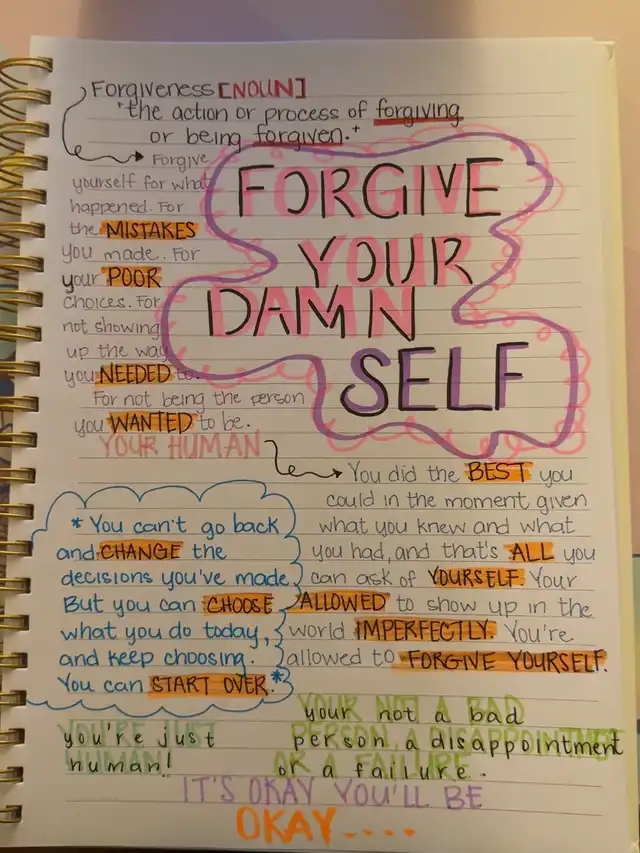 Forgiveness [NOUN]
"the action or process of forgiving
or being forgiven."
Forgive
yourself for what
happened. For
the MISTAKES
you made. For
your POOR
choices. For
not showing
up the way
you NEEDED to.
For not being the person
you WANTED to be.
YOUR HUMAN
FORGIVE
YOUR
DAMN
SELF
You did the BEST you
could in the moment given
what you knew and what
you had, and that's ALL you
can ask of YOURSELF. Your
ALLOWED to show up in the
world IMPERFECTLY. You're
allowed to FORGIVE YOURSELF.
* You can't go back
and CHANGE the
decisions you've made.
But you can CHOOSE
what you do today,
and keep choosing.
You can START OVER.*
YOU'RE JUST
HUMAN!
you're just
human!
YOUR NOT A BAD
PERSON, A DISAPPOINTMENT
OR A FAILURE
your not a bad
person, a disappointment
or a failure.
IT'S OKAY YOU'LL BE
OKAY....